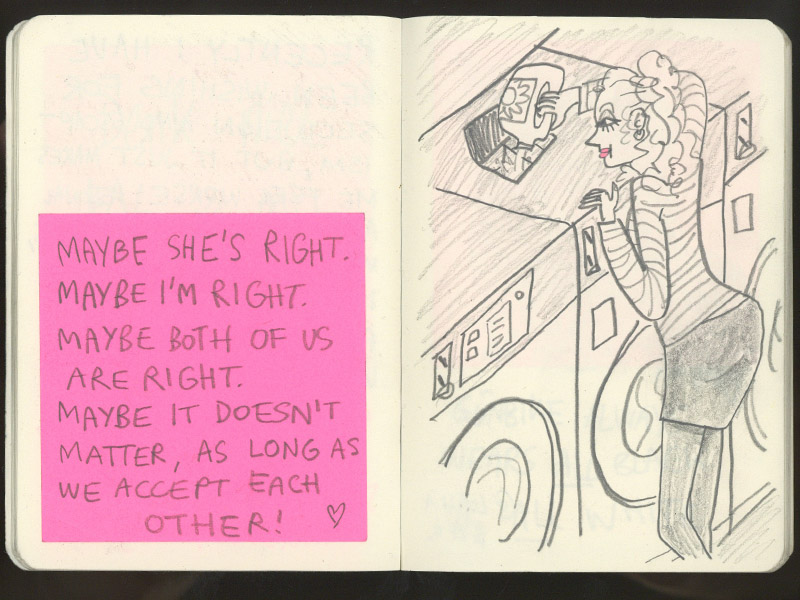 MAYBE SHE'S RIGHT.
MAYBE I'M RIGHT.
MAYBE BOTH OF US
ARE RIGHT.
MAYBE IT DOESN'T
MATTER, AS LONG AS
WE ACCEPT EACH
OTHER! ♡